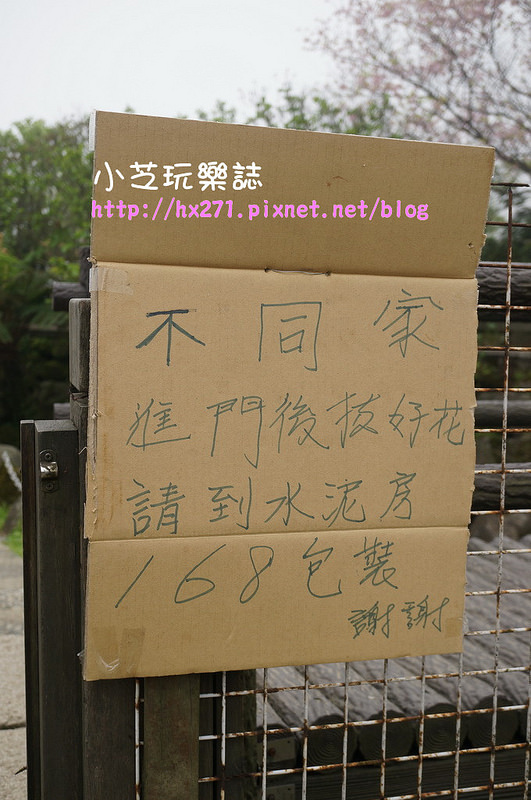 小芝玩樂誌
http://hx271.pixnet.net/blog
不同家
進門後拔好花
請到水泥房
168包裝
謝謝